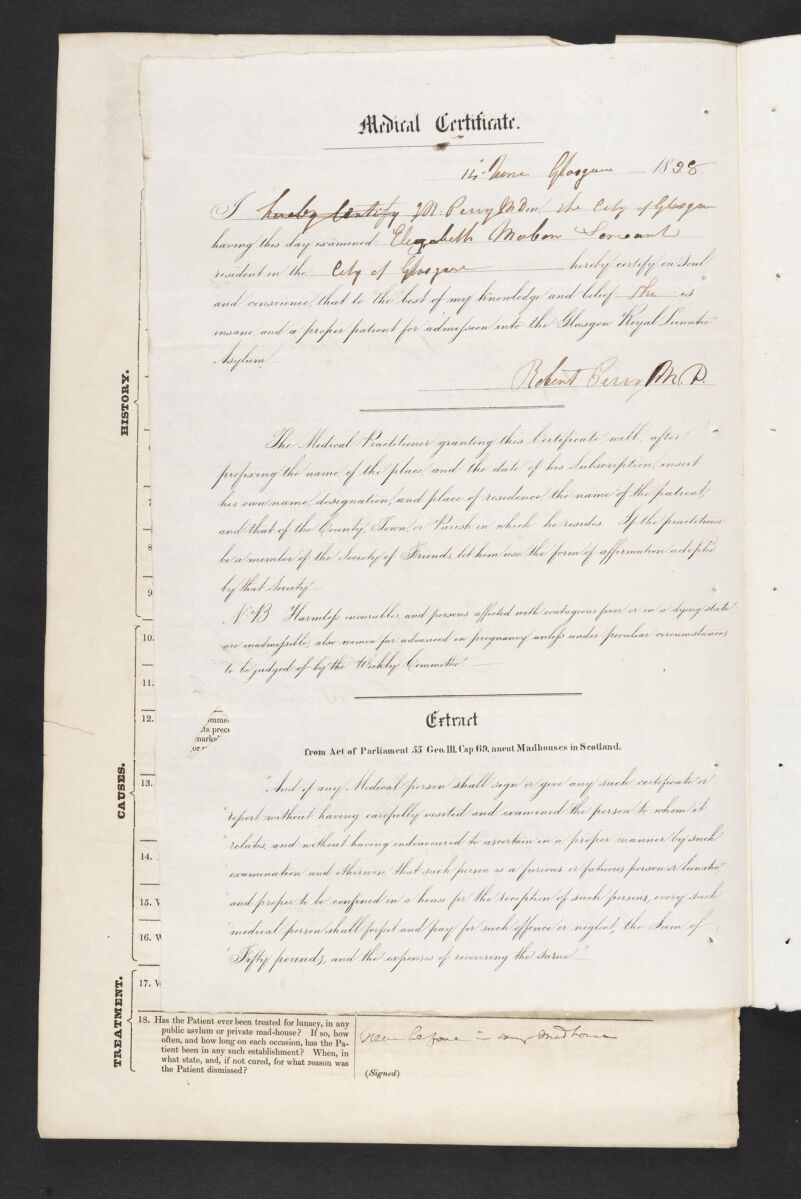 Medical Certificate.
14 June Glasgow 1828
I hereby Certify R. Perry M D in the City of Glasgow
having this day examined Elizabeth Mabon Servant
resident in the City of Glasgow hereby certify on Soul
and conscience, that to the best of my knowledge and belief she is
insane, and a proper patient for admission into the Glasgow Royal Lunatic
Asylum
Robert Perry M.D.
The Medical Practitioner granting this Certificate will, after
prefixing the name of the place and the date of his Subscription, insert
his own name, designation, and place of residence, the name of the patient,
and that of the County, Town or Parish in which he resides. If the practitioner
be a member of the Society of Friends, let him use the form of affirmation adopted
by that Society.
N.B. Harmless incurables, and persons affected with contagious fever or in a dying state
are inadmissible; also women far advanced in pregnancy, unless under peculiar circumstances,
to be judged of by the Weekly Committee.
Extract
from Act of Parliament 55 Geo. III. Cap 69, anent Madhouses in Scotland.
"And if any Medical person shall sign or give any such certificate or
"report, without having carefully visited and examined the person to whom it
"relates, and without having endeavoured to ascertain in a proper manner by such
"examination and otherwise that such person is a furious or fatuous person or lunatic,
"and proper to be confined in a house for the reception of such persons, every such
"medical person shall forfeit and pay for such offence or neglect, the Sum of
"Fifty pounds, and the expenses of recovering the same."
HISTORY.
7
8
9
10.
11.
12.
CAUSES.
13.
14.
15. W
16. W
TREATMENT.
17. W
18. Has the Patient ever been treated for lunacy, in any
public asylum or private mad-house? If so, how
often, and how long on each occasion, has the Pa-
tient been in any such establishment? When, in
what state, and, if not cured, for what reason was
the Patient dismissed?
never before in any mad house
(Signed)